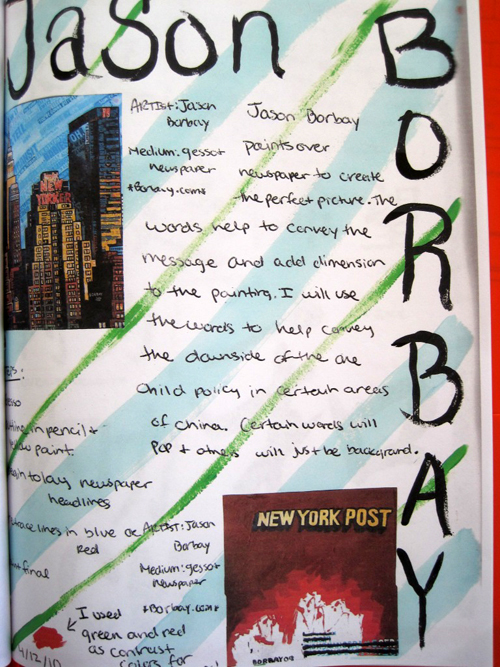 Jason
BORBAY
NEW
YORKER
ARTIst: Jason
Borbay
Medium: gesso+
newspaper
*Borbay.com*
Jason Borbay
paints over
newspaper to create
the perfect picture. The
words help to convey the
message and add dimension
to the painting. I will use
the words to help convey
the downside of the one
child policy in certain areas
of china. Certain words will
pop + others will just be background.
in pencil +
paint.
to lay newspaper
headlines
trace lines in blue or
Red
final
ARTIST: Jason
Borbay
Medium: gesso+
newspaper
*Borbay.com*
NEW YORK POST
BORBAY09
I used
green and red
as contrast
colors for
4/12/10